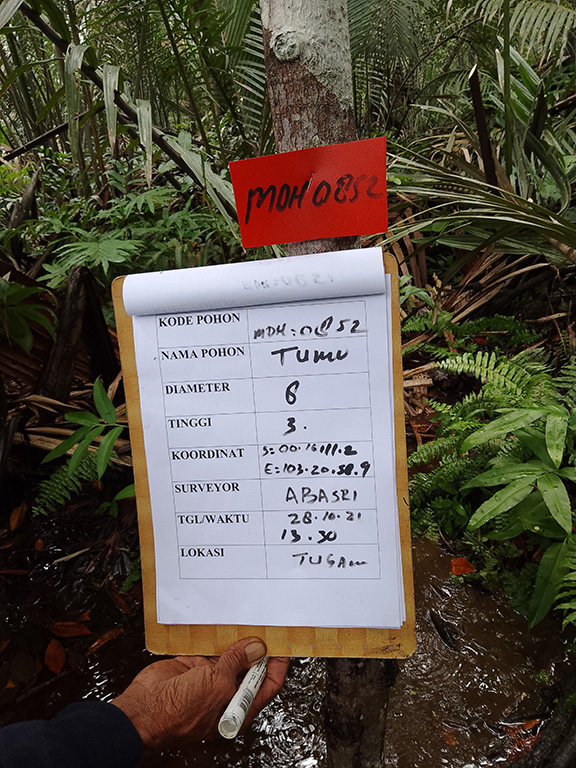 MDH 0852
KODE POHON MDH : 0852
NAMA POHON TUMU
DIAMETER 6
TINGGI 3.
KOORDINAT S=00.16.111.2
E=103.20.58.9
SURVEYOR ABASRI
TGL/WAKTU 28.10.21
13.30
LOKASI